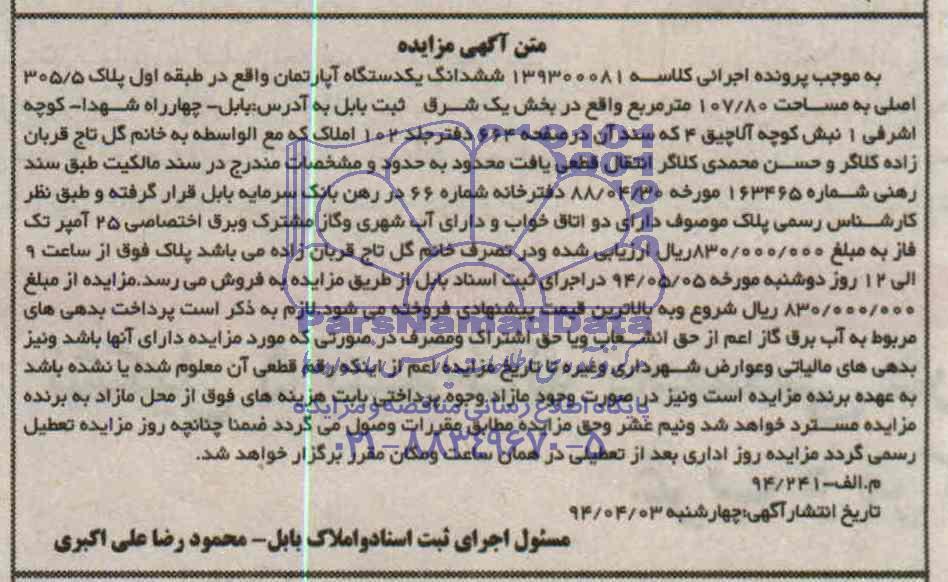 متن آگهی مزایده
به موجب پرونده اجرائی کلاسه ۱۳۹۳۰۰۰۸۱ ششدانگ یکدستگاه آپارتمان واقع در طبقه اول پلاک ۳۰۵/۵
اصلی به مساحت ۱۰۷/۸۰ مترمربع واقع در بخش یک شرق ثبت بابل به آدرس:بابل- چهارراه شهدا- کوچه
اشرفی ۱ نبش کوچه آلاچیق ۴ که سند آن درصفحه ۶۶۴ دفترجلد ۱۰۲ املاک که مع الواسطه به خانم گل تاج قربان
زاده کلاگر و حسن محمدی کلاگر انتقال قطعی یافت محدود به حدود و مشخصات مندرج در سند مالکیت طبق سند
رهنی شماره ۱۶۳۴۶۵ مورخه ۸۸/۰۴/۳۰ دفترخانه شماره ۶۶ در رهن بانک سرمایه بابل قرار گرفته و طبق نظر
کارشناس رسمی پلاک موصوف دارای دو اتاق خواب و دارای آب شهری وگاز مشترک وبرق اختصاصی ۲۵ آمپر تک
فاز به مبلغ ۸۳۰/۰۰۰/۰۰۰ریال ارزیابی شده ودر تصرف خانم گل تاج قربان زاده می باشد پلاک فوق از ساعت ۹
الی ۱۲ روز دوشنبه مورخه ۹۴/۰۵/۰۵ دراجرای ثبت اسناد بابل از طریق مزایده به فروش می رسد.مزایده از مبلغ
۸۳۰/۰۰۰/۰۰۰ ریال شروع وبه بالاترین قیمت پیشنهادی فروخته می شود.لازم به ذکر است پرداخت بدهی های
مربوط به آب برق گاز اعم از حق انشعاب ویا حق اشتراک ومصرف در صورتی که مورد مزایده دارای آنها باشد ونیز
بدهی های مالیاتی وعوارض شهرداری وغیره تا تاریخ مزایده اعم از اینکه رقم قطعی آن معلوم شده یا نشده باشد
به عهده برنده مزایده است ونیز در صورت وجود مازاد وجوه پرداختی بابت هزینه های فوق از محل مازاد به برنده
مزایده مسترد خواهد شد ونیم عشر وحق مزایده مطابق مقررات وصول می گردد ضمنا چنانچه روز مزایده تعطیل
رسمی گردد مزایده روز اداری بعد از تعطیلی در همان ساعت ومکان مقرر برگزار خواهد شد.
م.الف-۹۴/۲۴۱
تاریخ انتشارآگهی:چهارشنبه ۹۴/۰۴/۰۳
مسئول اجرای ثبت اسنادواملاک بابل- محمود رضا علی اکبری
ParsNamadData
پایگاه اطلاع رسانی مناقصه و مزایده
۰۲۱-۸۸۳۴۹۶۷۰-۵